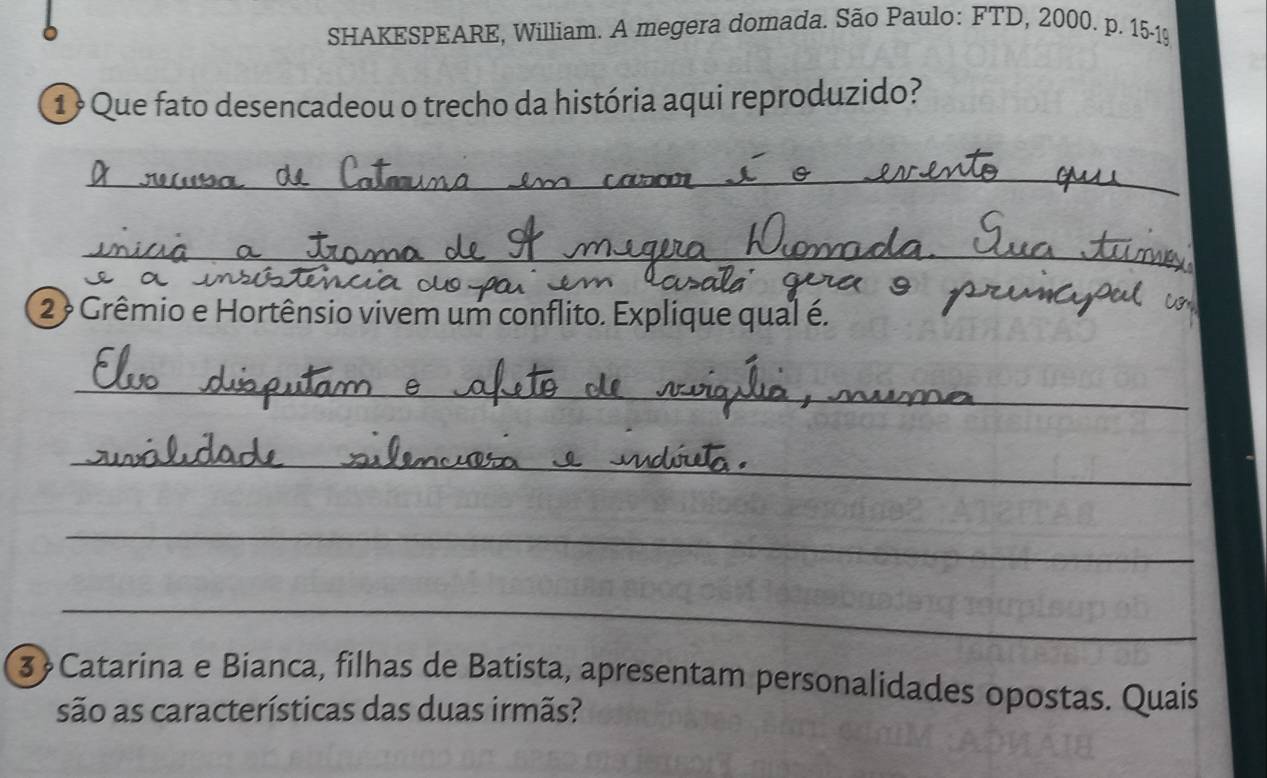 SHAKESPEARE, William. A megera domada. São Paulo: FTD, 2000. p. 15-19
1 Que fato desencadeou o trecho da história aqui reproduzido?
A recusa de Catarina em casar é o evento que
inicia a trama de A megera Domada. Sua
e a insistência do pai em casala gera o principal
2 Grêmio e Hortênsio vivem um conflito. Explique qual é.
Eles disputam o afeto de numa
rivalidade silenciosa e indireta.
3 Catarina e Bianca, filhas de Batista, apresentam personalidades opostas. Quais
são as características das duas irmãs?